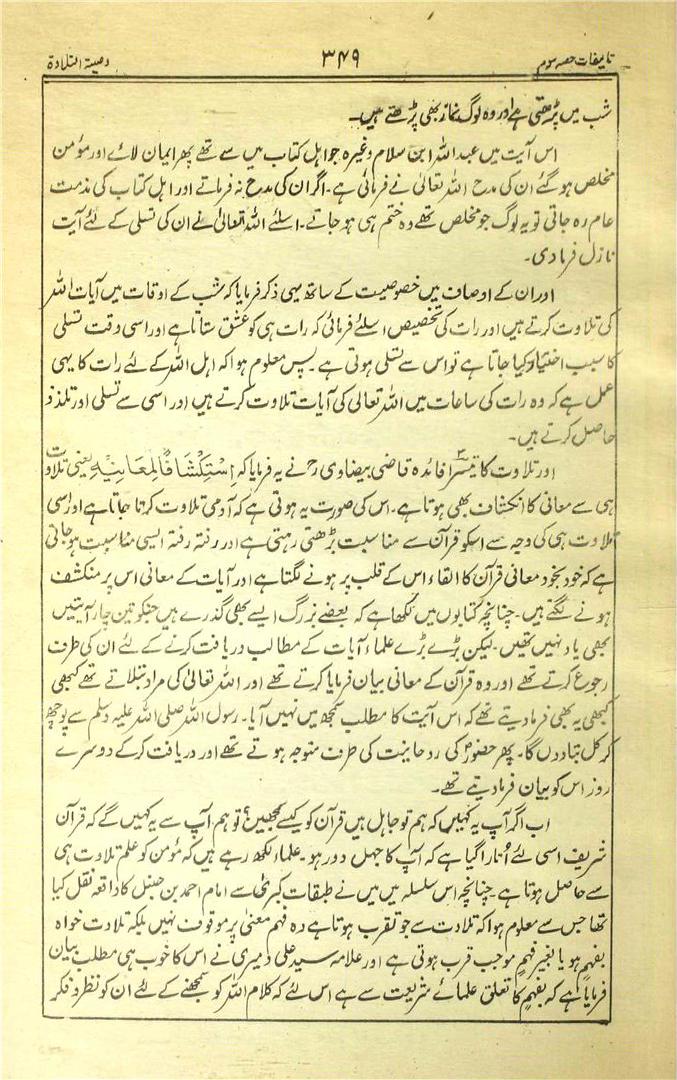 تالیفات حصہ سوم ۳۴۹ وصیۃ التلاوۃ
شب میں پڑھتی ہے اور وہ لوگ نماز بھی پڑھتے ہیں۔
اس آیت میں عبداللہ ابن سلام وغیرہ جو اہل کتاب میں سے تھے پھر ایمان لائے اور مؤمن
مخلص ہوگئے ان کی مدح اللہ تعالیٰ نے فرمائی ہے۔ اگر ان کی مدح نہ فرماتے اور اہل کتاب کی مذمت
عام رہ جاتی تو یہ لوگ جو مخلص تھے وہ ختم ہی ہو جاتے۔ اسلئے اللہ تعالیٰ نے ان کی تسلی کے لئے آیت
نازل فرمادی۔
اور ان کے اوصاف میں خصوصیت کے ساتھ یہی ذکر فرمایا کہ شب کے اوقات میں آیات اللہ
کی تلاوت کرتے ہیں اور رات کی تخصیص اسلئے فرمائی کہ رات ہی کو عشق ستاتا ہے اور اسی وقت تسلی
کا سبب اختیار کیا جاتا ہے تو اس سے تسلی ہوتی ہے۔ پس معلوم ہوا کہ اہل اللہ کے لئے رات کا یہی
عمل ہے کہ وہ رات کی ساعات میں اللہ تعالیٰ کی آیات تلاوت کرتے ہیں اور اسی سے تسلی اور تلذذ
حاصل کرتے ہیں۔
اور تلاوت کا تیسرا ۳ فائدہ قاضی بیضاوی رح نے یہ فرمایا کہ اِسْتِکْشَافًا لِمَعَانِیْهِ یعنی تلاوت
ہی سے معانی کا انکشاف بھی ہوتا ہے۔ اس کی صورت یہ ہوتی ہے کہ آدمی تلاوت کرتا جاتا ہے اور اسی
تلاوت ہی کی وجہ سے اسکو قرآن سے مناسبت بڑھتی رہتی ہے اور رفتہ رفتہ ایسی مناسبت ہو جاتی
ہے کہ خود بخود معانی قرآن کا القاء اس کے قلب پر ہونے لگتا ہے اور آیات کے معانی اس پر منکشف
ہونے لگتے ہیں۔ چنانچہ کتابوں میں لکھا ہے کہ بعضے بزرگ ایسے بھی گذرے ہیں جنکو تین چار آیتیں
بھی یاد نہیں تھیں۔ لیکن بڑے بڑے علماء آیات کے مطالب دریافت کرنے کے لئے ان کی طرف
رجوع کرتے تھے اور وہ قرآن کے معانی بیان فرمایا کرتے تھے اور اللہ تعالیٰ کی مراد بتلاتے تھے کبھی
کبھی یہ بھی فرمادیتے تھے کہ اس آیت کا مطلب سمجھ میں نہیں آیا۔ رسول اللہ صلی اللہ علیہ وسلم سے پوچھ
کر کل بتا دوں گا۔ پھر حضورؐ کی روحانیت کی طرف متوجہ ہوتے تھے اور دریافت کرکے دوسرے
روز اس کو بیان فرمادیتے تھے۔
اب اگر آپ یہ کہیں کہ ہم تو جاہل ہیں قرآن کو کیسے سمجھیں؟ تو ہم آپ سے یہ کہیں گے کہ قرآن
شریف اسی لئے اُتارا گیا ہے کہ آپ کا جہل دور ہو۔ علماء لکھ رہے ہیں کہ مؤمن کو علم تلاوت ہی
سے حاصل ہوتا ہے۔ چنانچہ اس سلسلہ میں میں نے طبقات کبریٰ سے امام احمد بن حنبل کا واقعہ نقل کیا
تھا جس سے معلوم ہوا کہ تلاوت سے جو تقرب ہوتا ہے وہ فہم معنیٰ پر موقوف نہیں بلکہ تلاوت خواہ
بفہم ہو یا بغیر فہم موجب قرب ہوتی ہے اور علامہ سید علی دمیری نے اس کا خوب ہی مطلب بیان
فرمایا ہے کہ بفہم کا تعلق علمائے شریعت سے ہے اس لئے کہ کلام اللہ کو سمجھنے کے لئے ان کو نظر و فکر